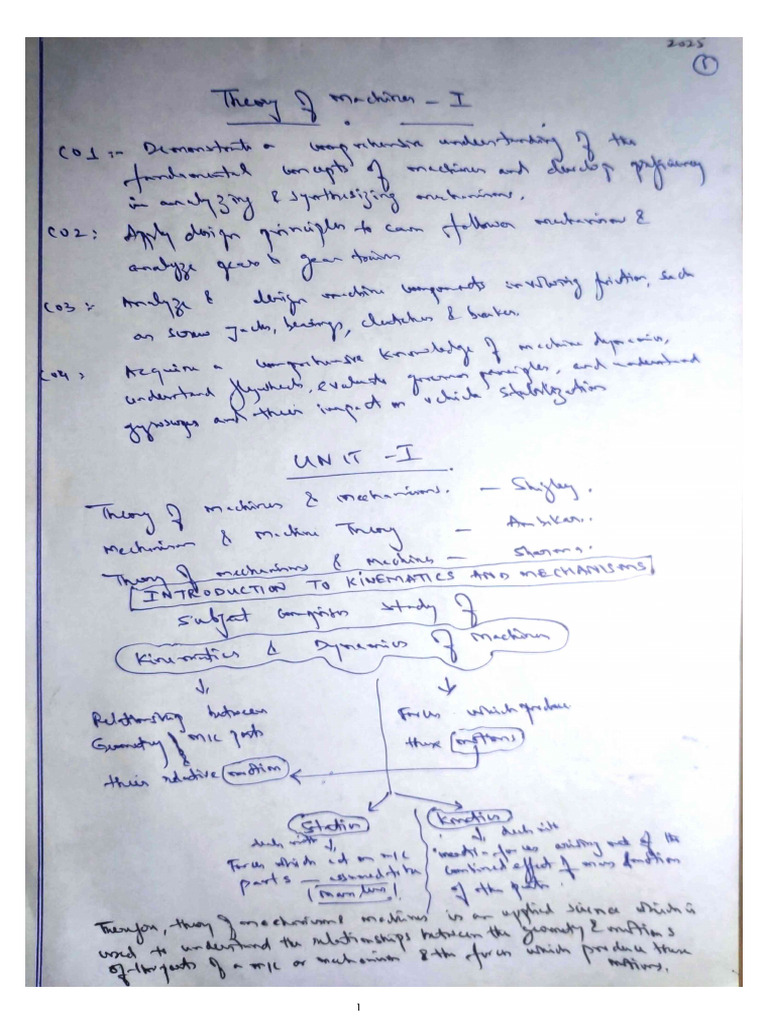 2025
1
Theory of machines - I
CO1:- Demonstrate a comprehensive understanding of the
fundamental concepts of machines and develop proficiency
in analyzing & synthesizing mechanisms.
CO2: Apply design principles to cam follower mechanism &
analyze gears & gear trains
CO3:- Analyze & design machine components involving friction, such
as screw jacks, bearings, clutches & brakes.
CO4: Acquire a comprehensive knowledge of machine dynamics,
understand flywheels, evaluate governor principles, and understand
gyroscopes and their impact on vehicle stabilization
UNIT - I
Theory of machines & mechanisms. - Shigley.
Mechanism & Machine Theory - Ambekar..
Theory of mechanisms & machines - Sharma.
INTRODUCTION TO KINEMATICS AND MECHANISMS
Subject comprises study of
Kinematics & Dynamics of machines
Relationship between
Geometry of m/c parts
&
their relative motion
Forces which produce
these motions
Statics
deals with
Forces which act on m/c
parts - assumed to be
mass less
Kinetics
deals with
forces arising out of the
combined effect of mass & motion
of the parts.
Therefore, theory of mechanisms & machines is an applied science which is
used to understand the relationships between the geometry & motions
of the parts of a m/c or mechanism & the forces which produce these
motions.
1